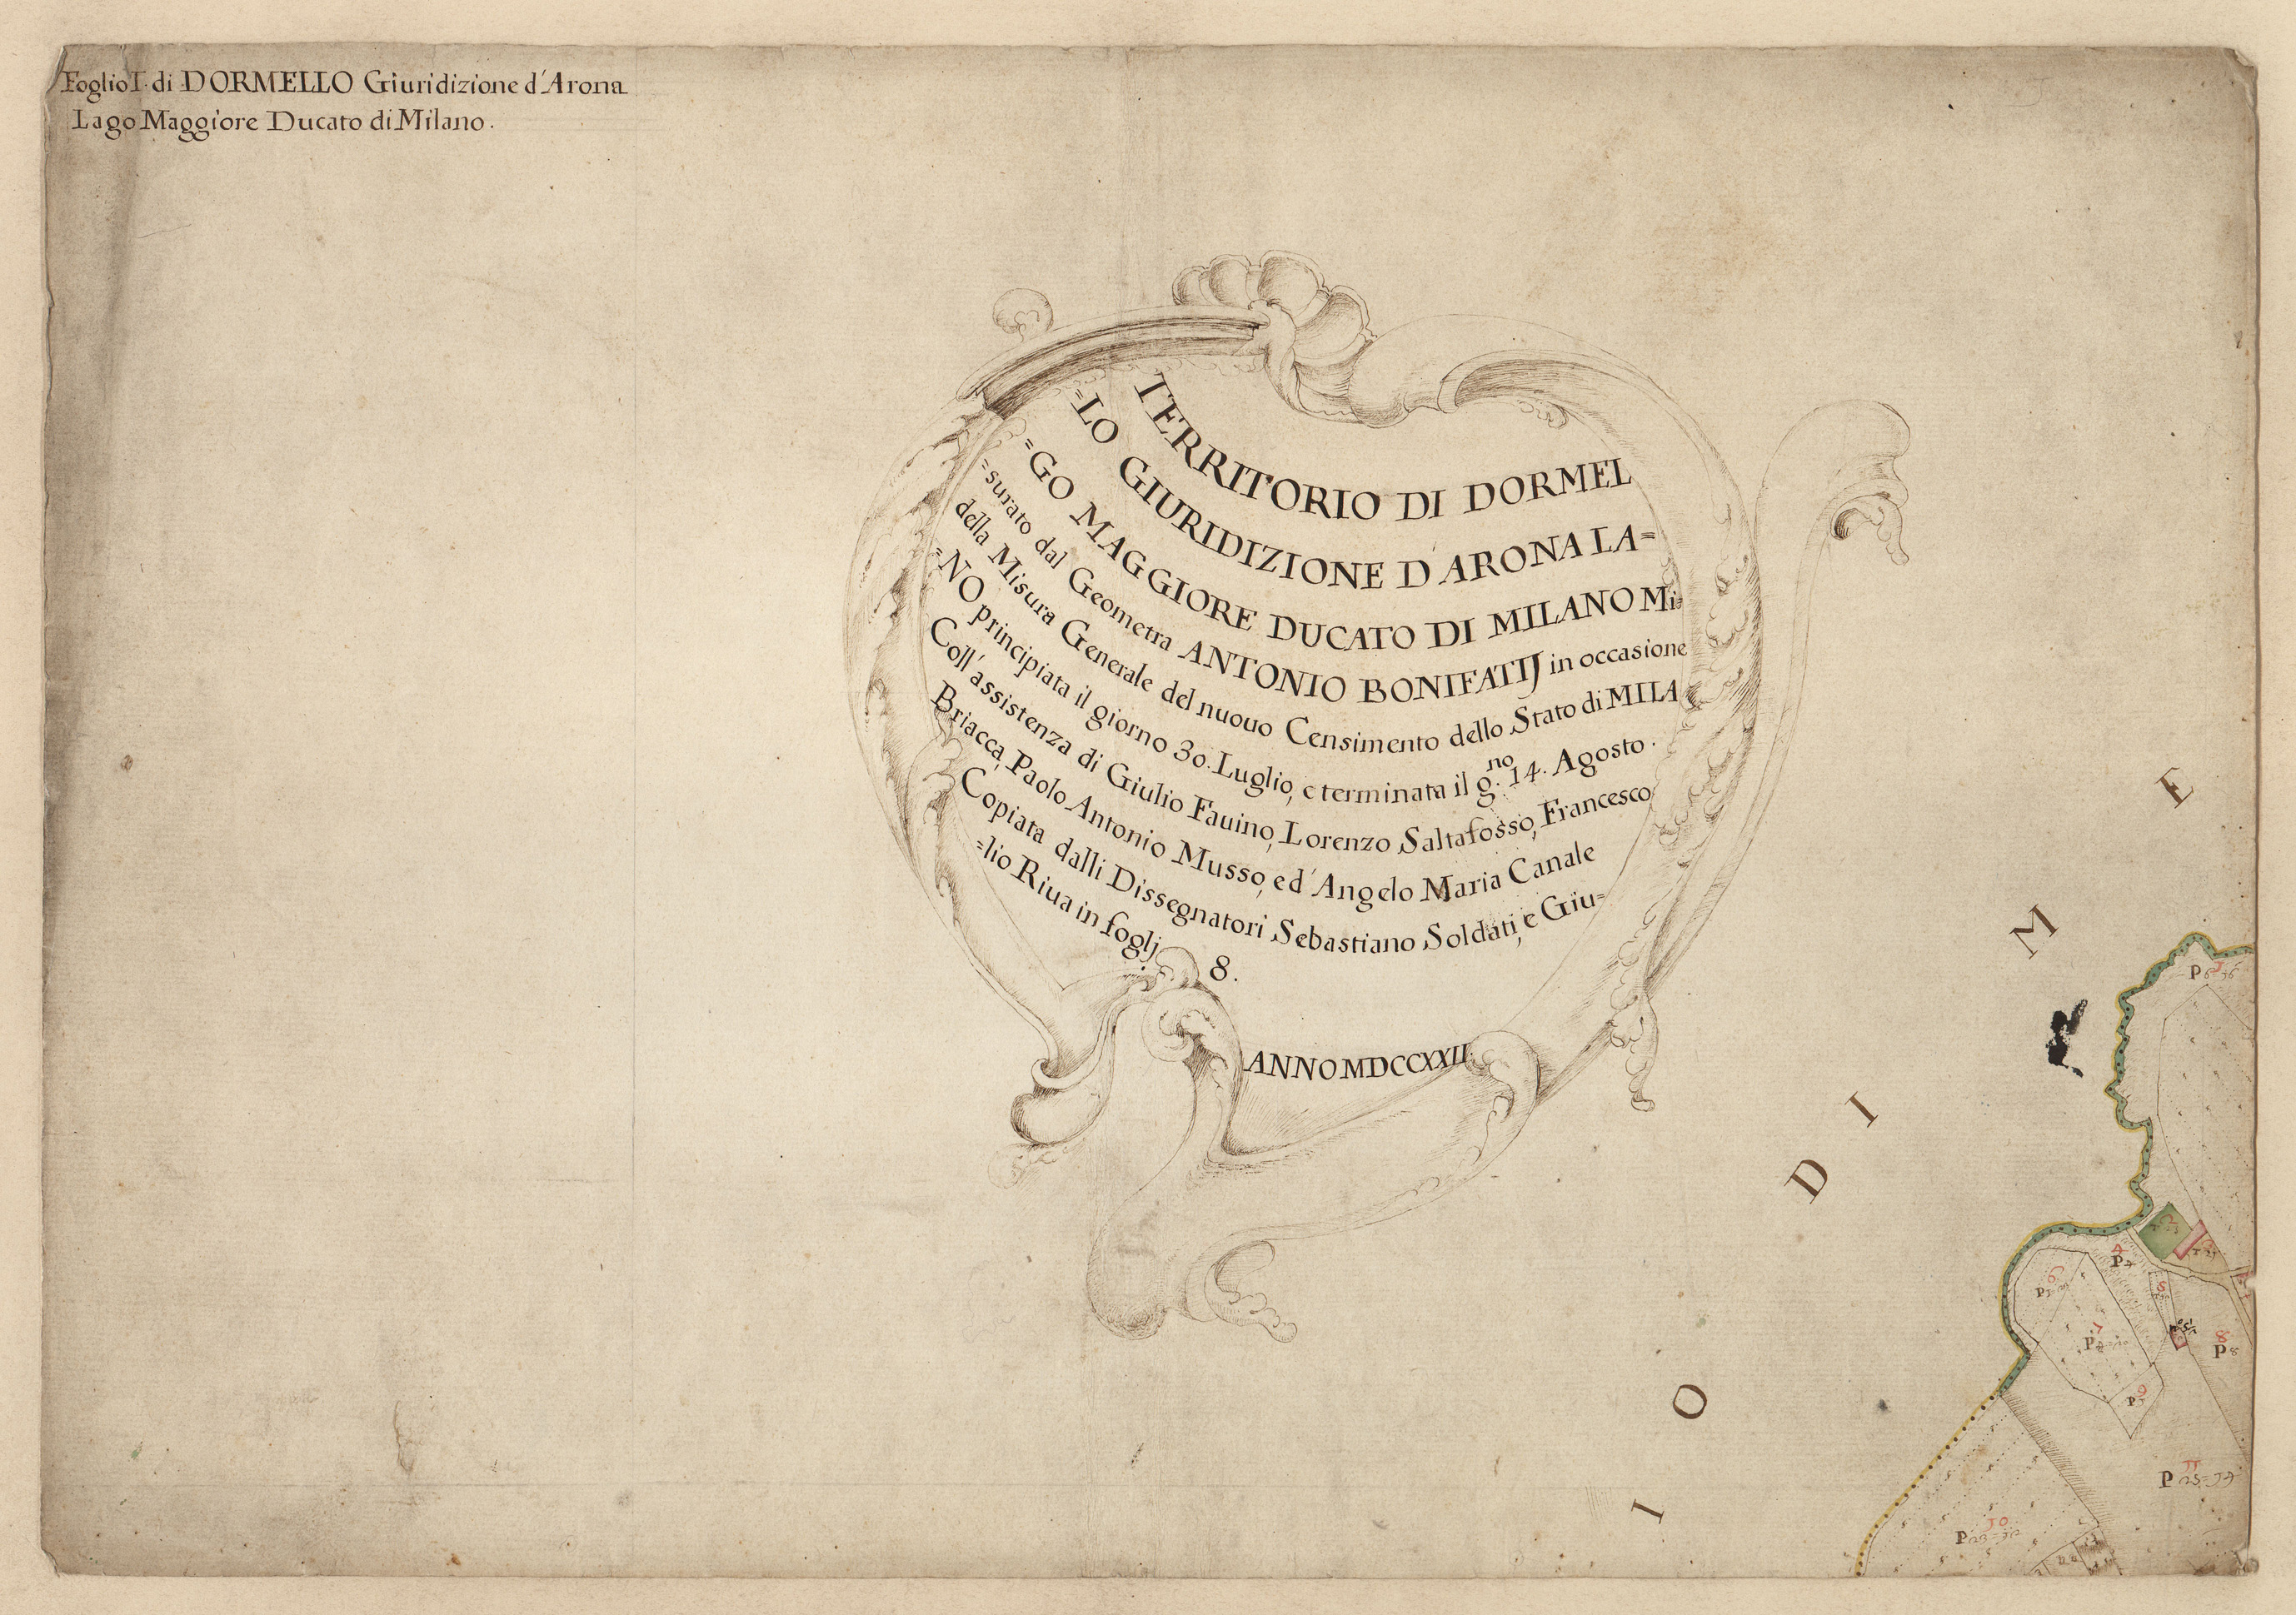 Foglio I. di DORMELLO Giuridizione d'Arona
Lago Maggiore Ducato di Milano.
TERRITORIO DI DORMEL
=LO GIURIDIZIONE D'ARONA LA=
=GO MAGGIORE DUCATO DI MILANO Mi=
=surato dal Geometra ANTONIO BONIFATIJ in occasione
della Misura Generale del nuouo Censimento dello Stato di MILA
=NO principiata il giorno 30. Luglio, e terminata il g.no 14. Agosto.
Coll'assistenza di Giulio Fauino, Lorenzo Saltafosso, Francesco
Briacca, Paolo Antonio Musso, ed'Angelo Maria Canale
Copiata dalli Dissegnatori Sebastiano Soldati, e Giu=
=lio Riua in foglj 8.
ANNO MDCCXXII.
I O DI M E
P
4
P
6
P
5
7
P
8
P 8
9
P
11
P
10
P